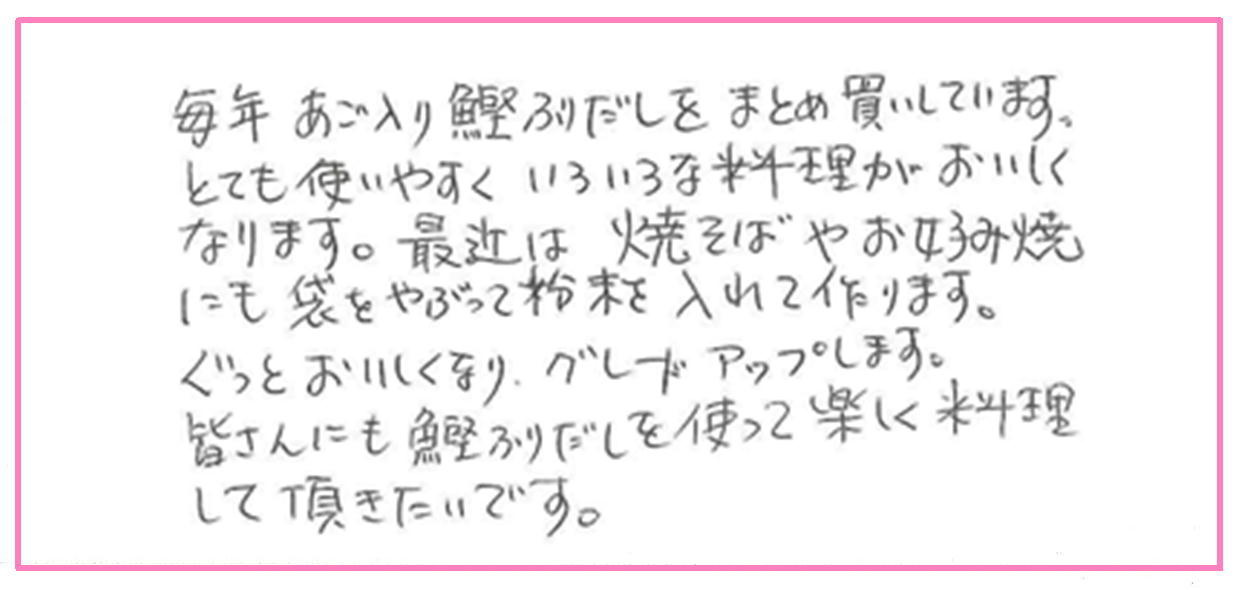 毎年 あご入り鰹ふりだしを まとめ買いしています。
とても使いやすく いろいろな料理が おいしく
なります。最近は 焼そばやお好み焼
にも 袋をやぶって粉末を 入れて作ります。
ぐっと おいしくなり、グレード アップします。
皆さんにも 鰹ふりだしを使って楽しく 料理
して頂きたいです。